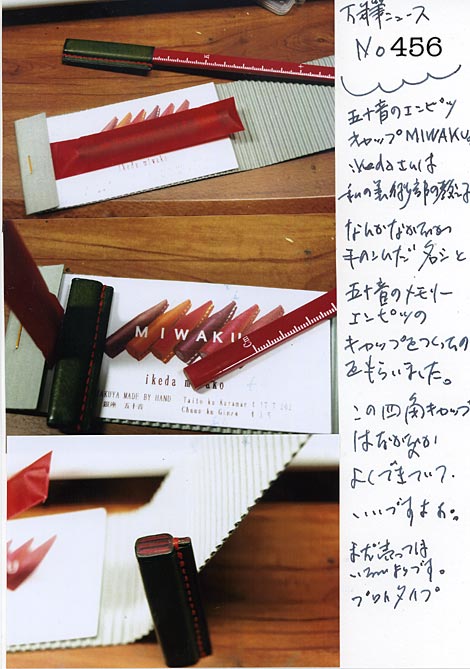 万年筆ニュース
No 456
五十音のエンピツ
キャップMIWAKU
ikedaさんは
私の美術部の教え子
なんかなかなか
手のこんだ名シと
五十音のメモリー
エンピツの
キャップをつくったの
をもらいました。
この四角キャップ
はなかなか
よくできていて、
いいですよね。
まだ売っては
いないようです。
プロトタイプ
ikeda miwako
MIWAKU
ikeda miwako
AKUYA MADE BY HAND
Taito ku Kuramae
銀座 五十音
Chuou ku Ginza